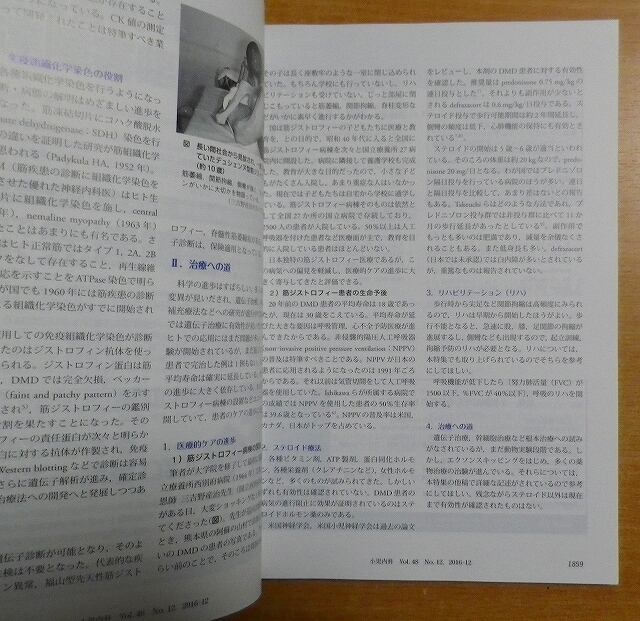 が存在すること
になっている。CK値の測定
って切除されたことは特筆すべき業
免疫組織化学染色の役割
各種組織化学染色を行うようになっ
断・病態の解明はめざましい進歩を
なった。筋凍結切片にコハク酸脱水
nate dehydrogenase:SDH)染色を行
の違いを証明した研究が筋組織化学
思われる(Padykula HA, 1952年)。
M(筋疾患の診断に組織化学染色を
させた優れた神経内科医)はヒト生
片に組織化学染色を施し、central
年)、nemaline myopathy(1963年)
たことはあまりにも有名である。さ
はヒト正常筋ではタイプ1, 2A, 2B
をなして存在すること、再生線維
応を示すことをATPase染色で明ら
が国でも1960年には筋疾患の診断
る組織化学染色がすでに開始され
用しての免疫組織化学染色が診断
たのはジストロフィン抗体を使っ
られる。ジストロフィン蛋白は筋
、DMDでは完全欠損、ベッカー
(faint and patchy pattern)を示す
され、筋ジストロフィーの鑑別
割を果たすことになった。その
フィーの責任蛋白が次々と明らか
白に対する抗体が作製され、免疫
Western blottingなどで診断は容易
さらに遺伝子解析が進み、確定診
治療法への開発へと発展しつつあ
遺伝子診断が可能となり、そのよ
検は不要となった。代表的な疾
ン異常、福山型先天性筋ジスト
小児内科 Vol. 48 No. 12, 2016-12
図 長い間社会から見放され、
ていたデュシェンヌ型筋ジス
(約10歳)
筋萎縮、関節拘縮、脊柱
ンがいかに大切かを物語って
ロフィー、脊髄性筋萎縮症など
子診断は、保険適用となって
Ⅱ.治療への道
科学の進歩はすばらしい。
変異が見いだされ、遺伝子治療
補充療法などへの研究が進
では遺伝子治療に有効性が
ヒトでの応用にはまだ問題が
験が開始されているが、まだ
患者で完治した例は1例もない
平均寿命は確実に延長している
の進歩に大きく依存している。
ストロフィー病棟の設置などと
開していて、患者のケアの進歩
1.医療的ケアの進歩
1)筋ジストロフィー病棟の開設
筆者が大学院を修了して最初の
立療養所西別府病院(1964年
恩師 三吉野産治先生(国立療
がある日、大変ショッキングな
てくださった(図)。先生が
とき、熊本県の阿蘇の山村で
いのDMDの患者の写真である
らい前のことで、そのころは
その子は長く座敷牢のような一室に閉じ込められ
ていた。もちろん学校にも行っていないし、リハ
ビリテーションも受けていない。じっと部屋に閉
じこもっていると筋萎縮、関節拘縮、脊柱変形な
どがいかに素早く進行するかがわかる。
国は筋ジストロフィーの子どもたちに医療と教
育を、との目的で、昭和40年代に入ると全国に
筋ジストロフィー病棟を次々と国立療養所27病
院内に開設した。病院に隣接して養護学校も完成
した。教育が大きな目的だったので、小さな子ど
もがたくさん入院し、あまり重症な人はいなかっ
た。現在では子どもたちは自宅から学校に通学し
ている。筋ジストロフィー病棟そのものは依然と
して全国27か所の国立病院で存続しており、
2500人の患者が入院している。50%以上は人工
呼吸器を付けた患者など医療面が主で、教育を目
的に入院している患者はほとんどいない。
日本独特の筋ジストロフィー医療であるが、こ
の病気への偏見を軽減し、医療的ケアの進歩に大
きく寄与してきたと評価できる。
2)筋ジストロフィー患者の生命予後
20年前のDMD患者の平均寿命は18歳であっ
たが、現在は30歳をこえている。平均寿命が延
びた大きな要因は呼吸管理、心不全予防医療が進
んできたからである。非侵襲的陽圧人工呼吸器
(non-invasive positive pressure ventilation:NPPV)
の普及は特筆すべきことである。NPPVが日本の
患者に応用されるようになったのは1991年ごろ
からである。それ以前は気管切開をして人工呼吸
器を使用していた。Ishikawaらが所属する病院で
の成績ではNPPVを使用した患者の50%生存率
は39.6歳となっている。NPPVの普及率は米国、
カナダ、日本がトップを占めている。
2.ステロイド療法
各種ビタミン剤、ATP製剤、蛋白同化ホルモ
ン、各種栄養剤(クレアチニンなど)、女性ホルモ
ンなど、多くのものが試みられてきた。しかしい
ずれも有効性は確認されていない。DMD患者の
病気の進行阻止に効果が証明されているのはステ
ロイドホルモン薬のみである。
米国神経学会、米国小児神経学会は過去の論文
をレビューし、本剤のDMD患者に対する有効性
を確認した。推奨量はprednisone 0.75 mg/kgの
連日投与とした。それよりも副作用が少ないと
されるdeflazacortは0.6 mg/kg/日投与である。ス
テロイド投与で歩行可能期間は約2年間延長し、
側彎の頻度は低下、心肺機能の保持にも有効とさ
れている。
ステロイドの開始は5歳〜6歳が適当といわれ
ている。そのころの体重は約20 kgなので、predo-
nisone 20 mg/日となる。わが国ではプレドニゾロ
ン隔日投与を行っている病院のほうが多い。連日
と隔日投与を比較して、あまり差はないとの報告
もある。Takeuchiらはどのような方法であれ、プ
レドニゾロン投与群では非投与群に比べて11か
月の歩行延長があったとしている。副作用で
もっとも多いのは肥満であり、減量を余儀なくさ
れることもある。また低身長も多い。deflazacort
(日本では未承認)では白内障が多いとされている
が、重篤なものは報告されていない。
3.リハビリテーション(リハ)
歩行時から尖足など関節拘縮は高頻度にみられ
るので、リハは早期から開始したほうがよい。歩
行不能となると、急速に股、膝、足関節の拘縮が
進展するし、側彎なども出現するので、起立訓練、
拘縮予防のリハが必要となる。リハについては、
本特集でも取り上げられているのでそちらを参考
にしてほしい。
呼吸機能が低下したら〔努力肺活量(FVC)が
1500以下、%FVCが40%以下〕、呼吸のリハを
開始する。
4.治療への道
遺伝子治療、幹細胞治療など根本治療への試み
がなされているが、まだ動物実験段階である。し
かし、エクソンスキッピングをはじめ、多くの薬
物治療の治験が進んでいる。それらについては、
本特集の他稿で詳細な記述がされているので参考
にしてほしい。残念ながらステロイド以外は現在
まで有効性が確認されたものはない。
小児内科 Vol. 48 No. 12, 2016-12
1859